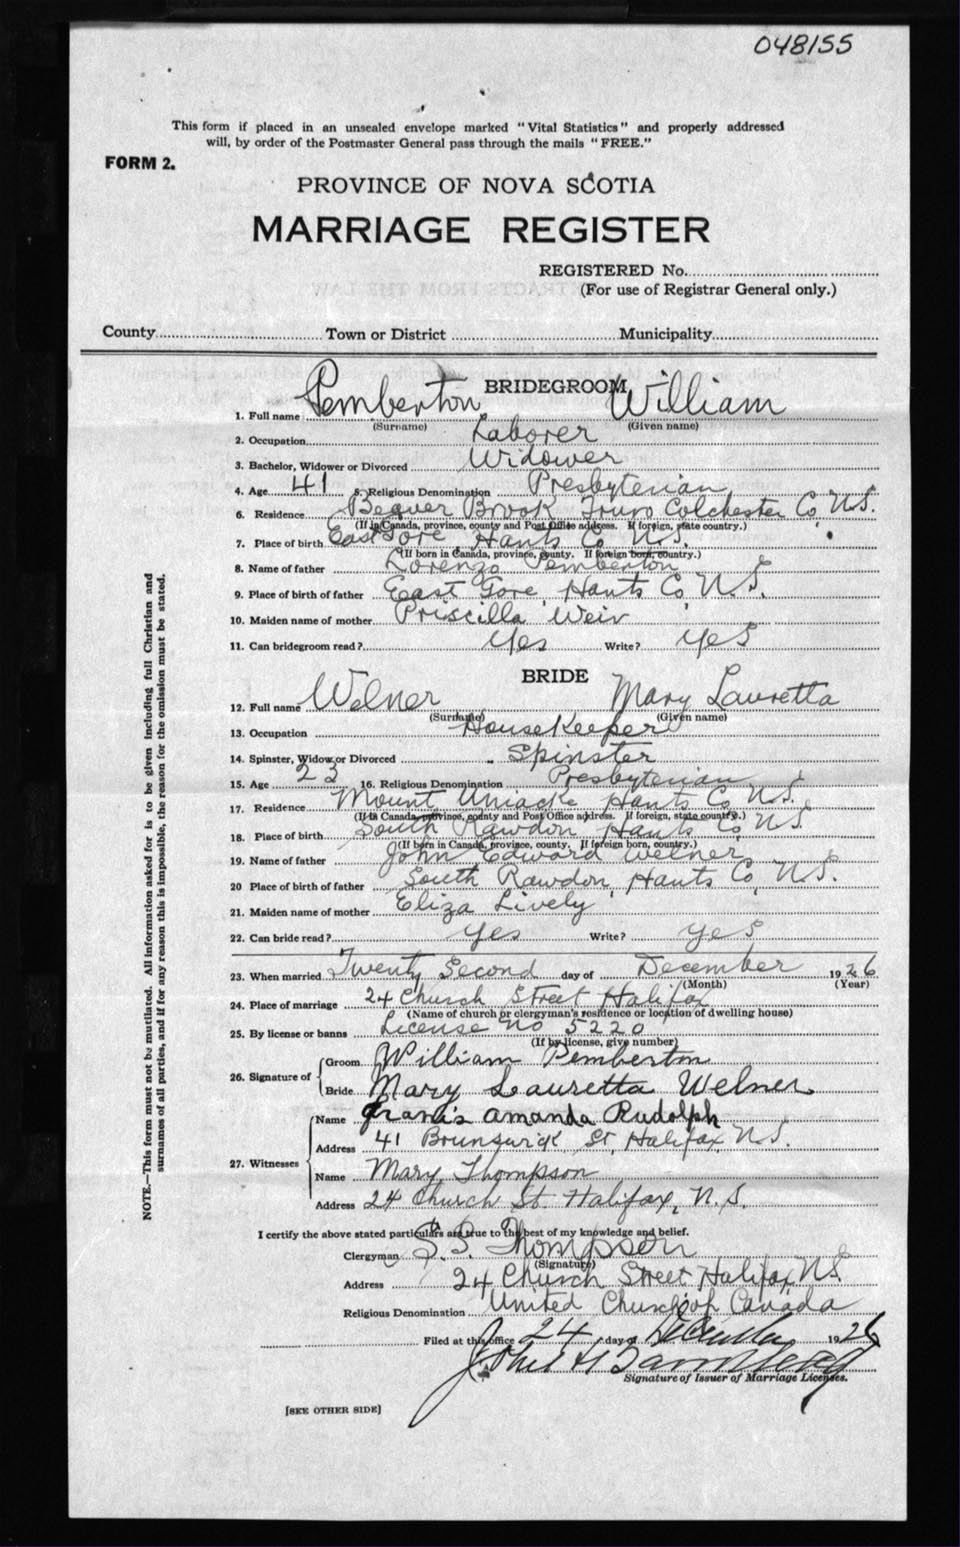 048155
This form if placed in an unsealed envelope marked "Vital Statistics" and properly addressed
will, by order of the Postmaster General pass through the mails "FREE."
FORM 2.
PROVINCE OF NOVA SCOTIA
MARRIAGE REGISTER
REGISTERED No.
(For use of Registrar General only.)
County Town or District Municipality
BRIDEGROOM
1. Full name Pemberton William
(Surname) (Given name)
2. Occupation Laborer
3. Bachelor, Widower or Divorced Widower
4. Age 41 5. Religious Denomination Presbyterian
6. Residence Beaver Brook Truro Colchester Co N.S.
(If in Canada, province, county and Post Office address. If foreign, state country.)
7. Place of birth East Gore Hants Co N.S.
(If born in Canada, province, county. If foreign born, country.)
8. Name of father Lorenzo Pemberton
9. Place of birth of father East Gore Hants Co N.S.
10. Maiden name of mother Priscilla Weir
11. Can bridegroom read? Yes Write? yes
BRIDE
12. Full name Welner Mary Lauretta
(Surname) (Given name)
13. Occupation HouseKeeper
14. Spinster, Widow or Divorced Spinster
15. Age 23 16. Religious Denomination Presbyterian
17. Residence Mount Uniacke Hants Co N.S.
(If in Canada, province, county and Post Office address. If foreign, state country.)
18. Place of birth South Rawdon Hants Co N.S.
(If born in Canada, province, county. If foreign born, country.)
19. Name of father John Edward Welner
20 Place of birth of father South Rawdon, Hants Co, N.S.
21. Maiden name of mother Eliza Lively
22. Can bride read? yes Write? yes
23. When married Twenty Second day of December 1926
(Month) (Year)
24. Place of marriage 24 Church Street Halifax
(Name of church or clergyman's residence or location of dwelling house)
25. By license or banns License no 5220
(If by license, give number)
26. Signature of Groom William Pemberton
Bride Mary Lauretta Welner
27. Witnesses Name Amanda Rudolph
Address 41 Brunswick St, Halifax, N.S.
Name Mary Thompson
Address 24 Church St. Halifax, N.S.
I certify the above stated particulars are true to the best of my knowledge and belief.
Clergyman Thompson
(Signature)
Address 24 Church Street Halifax N.S.
Religious Denomination United Church of Canada
Filed at this office 24 day of December 1926
John H
Signature of Issuer of Marriage Licenses.
[SEE OTHER SIDE]
NOTE.—This form must not be mutilated. All information asked for is to be given including full Christian and
surnames of all parties, and if for any reason this is impossible, the reason for the omission must be stated.